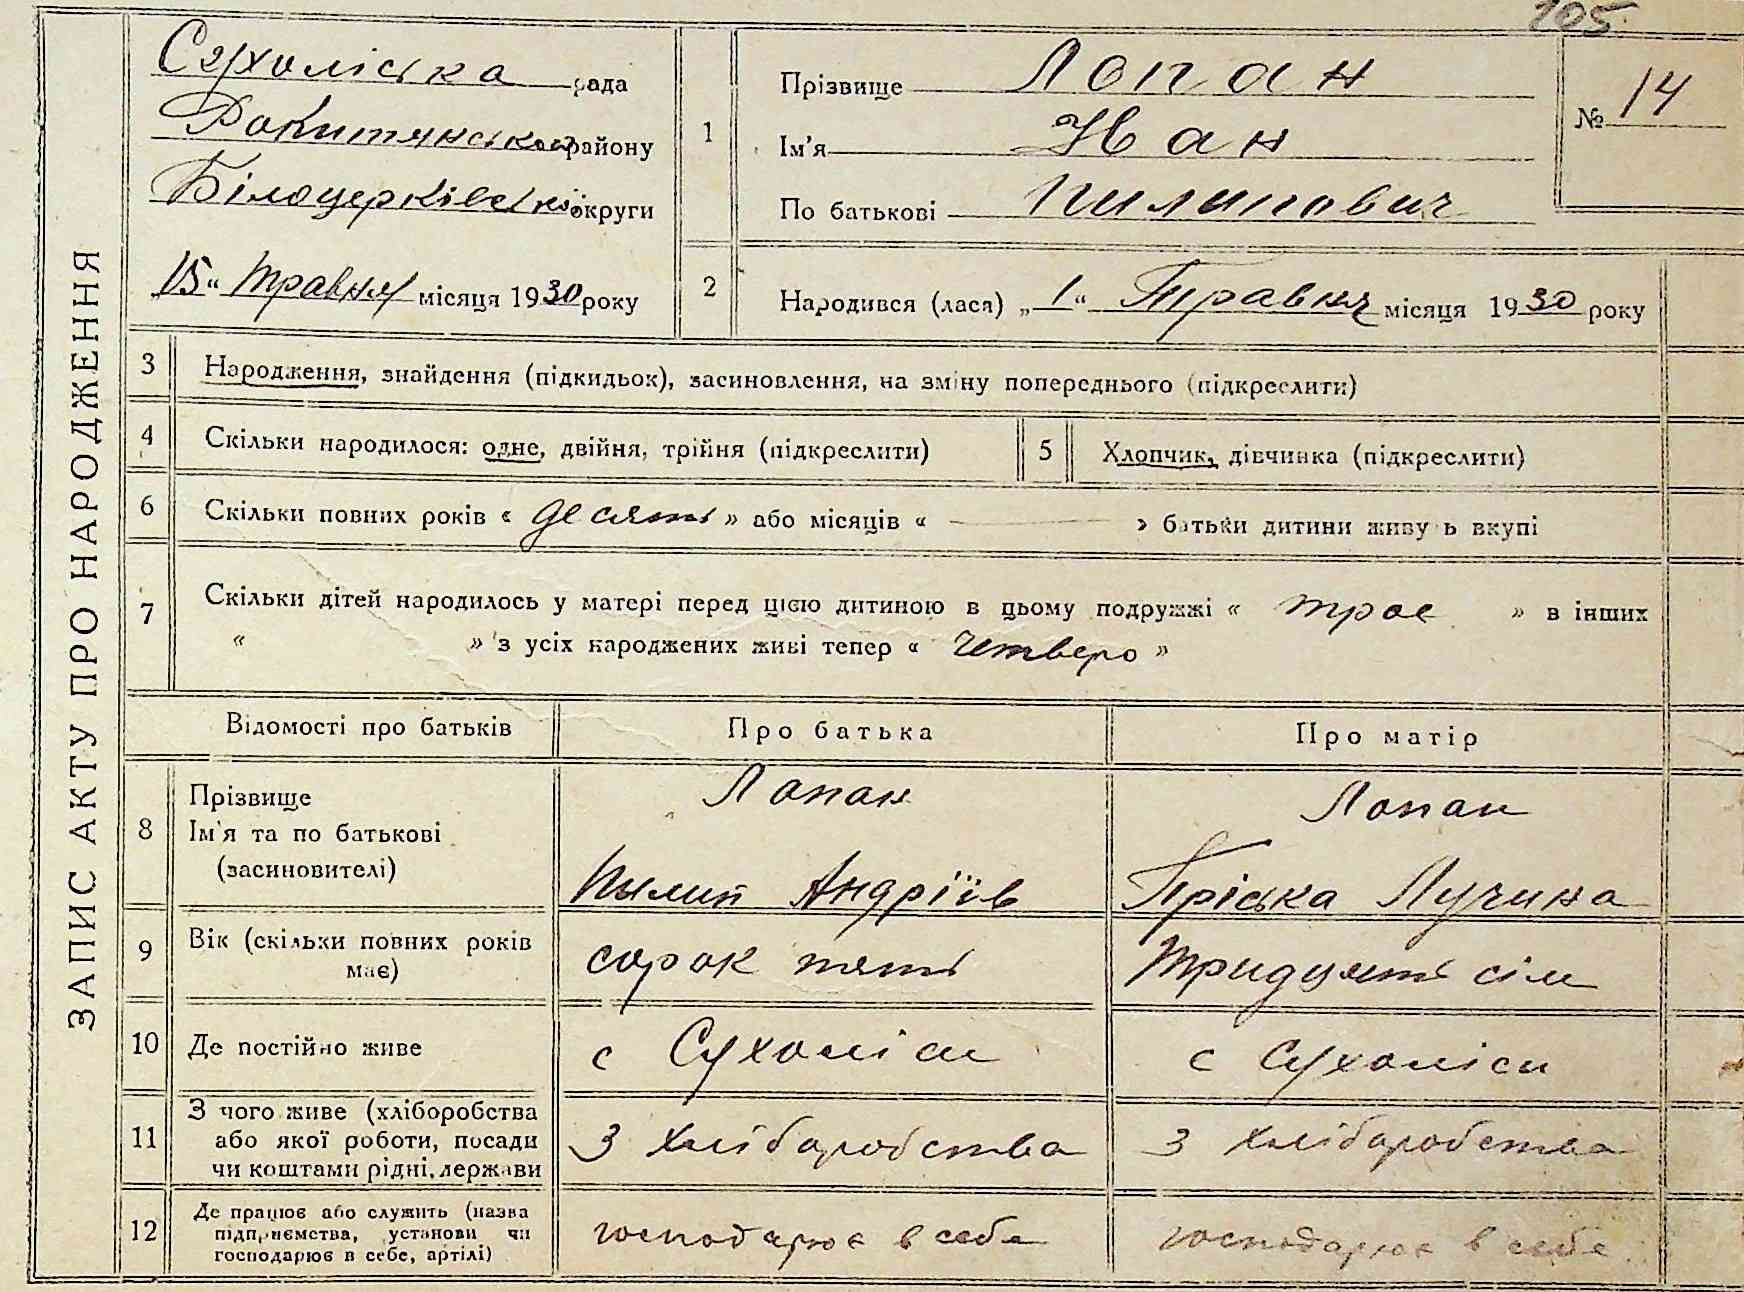 105
ЗАПИС АКТУ ПРО НАРОДЖЕННЯ
Сухоліська рада
Рокитянського району
Білоцерківської округи
15 „ травня місяця 1930 року
1
Прізвище Лопан
Ім'я Іван
По батькові Пилипович
№ 14
2
Народився (лася) „ 1 “ Травня місяця 1930 року
3 Народження, знайдення (підкидьок), засиновлення, на зміну попереднього (підкреслити)
4 Скільки народилося: одне, двійня, трійня (підкреслити)
5 Хлопчик, дівчинка (підкреслити)
6 Скільки повних років « десять » або місяців « » батьки дитини живуть вкупі
7 Скільки дітей народилось у матері перед цією дитиною в цьому подружжі « троє » в інших
« » з усіх народжених живі тепер « четверо »
Відомості про батьків Про батька Про матір
8 Прізвище Лопан Лопан
Ім'я та по батькові
(засиновителі) Пылип Андріїв Пріська Лучина
9 Вік (скільки повних років
має) сорок пять Тридцять сім
10 Де постійно живе с Сухоліси с Сухоліси
11 З чого живе (хліборобства
або якої роботи, посади
чи коштами рідні, держави З хліборобства З хліборобства
12 Де працює або служить (назва
підприємства, установи чи
господарює в себе, артілі) господарює в себе господарює в себе